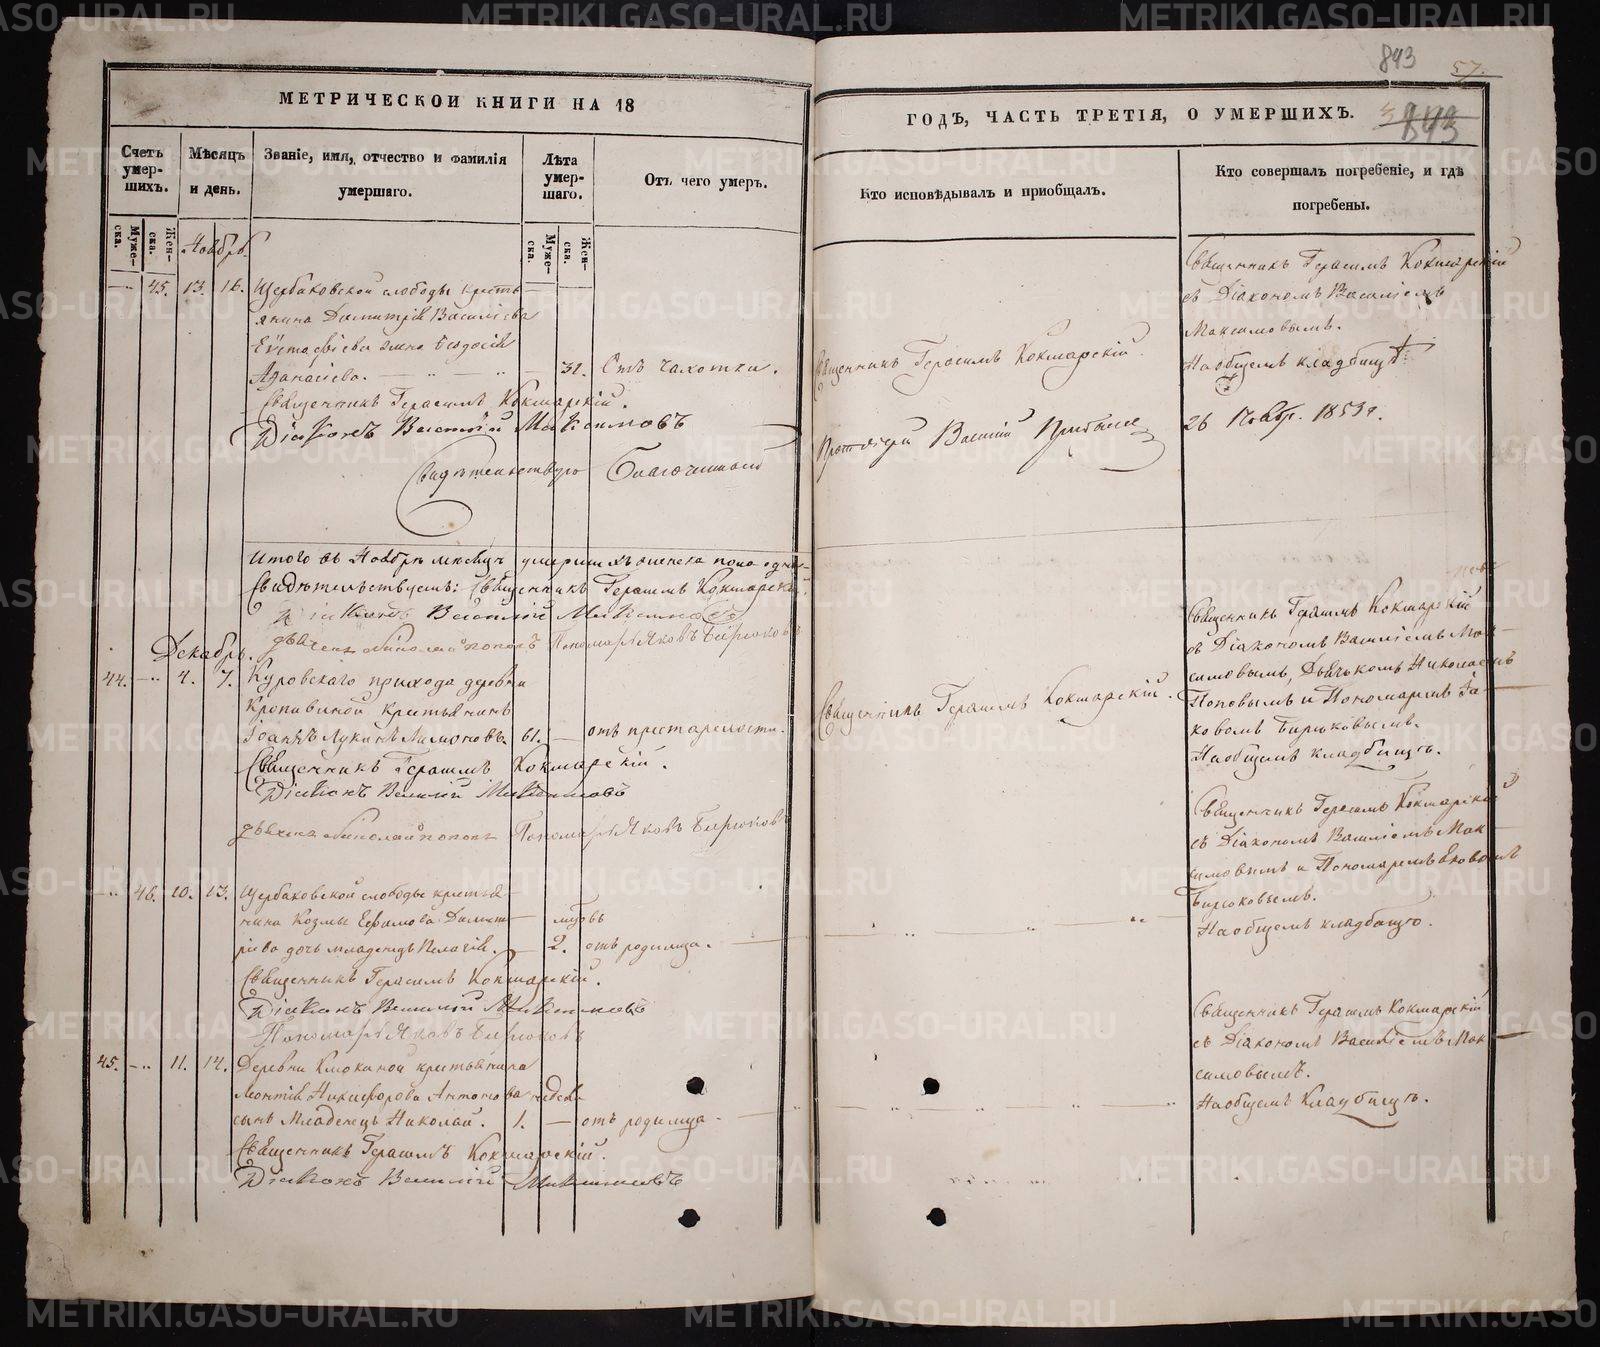 843
57.
843
МЕТРИЧЕСКОЙ КНИГИ НА 18
ГОДЪ, ЧАСТЬ ТРЕТІЯ, О УМЕРШИХЪ.
Счетъ умер-шихъ.
Муже-ска.
Жен-ска.
Мѣсяцъ и день.
Званіе, имя, отчество и фамилія умершаго.
Лѣта умер-шаго.
Муже-ска.
Жен-ска.
Отъ чего умеръ.
Кто исповѣдывалъ и приобщалъ.
Кто совершалъ погребеніе, и гдѣ погребены.
Ноябрь.
45. 13. 16. Щербаковской слободы кресть-
янина Димитрія Васильева
жена Ѳеодосія
Аѳанасіева. 32. Отъ чахотки.
Священникъ Герасимъ Кокшарскій.
Діаконъ Василій Максимовъ
Свидѣтельствую Благочинный
Священникъ Герасимъ Кокшарскій.
Протоіерей Василій
Священникъ Герасимъ Кокшарскій
съ Діакономъ Василіемъ
Максимовымъ.
На общемъ кладбищѣ.
26 Ноябр. 1853 г.
Итого въ Ноябрѣ мѣсяцѣ умершихъ
Свидѣтельствуемъ: Священникъ Герасимъ Кокшарскій
Діаконъ Василій Максимовъ
Дьячекъ Николай Поповъ Пономарь Яковъ Бирюковъ
Декабрь.
44. 4. 7. Куровскаго прихода деревни
Кропивиной крестьянинъ
Іоаннъ Лукинъ 61. отъ престарелости.
Священникъ Герасимъ Кокшарскій.
Діаконъ Василій Максимовъ
Дьячекъ Николай Поповъ Пономарь Яковъ Бирюковъ
Священникъ Герасимъ Кокшарскій.
Священникъ Герасимъ Кокшарскій
съ Діакономъ Василіемъ Мак-
симовымъ, Дьячкомъ Николаемъ
Поповымъ и Пономаремъ Іа-
ковомъ Бирюковымъ.
На общемъ кладбищѣ.
46. 10. 13. Щербаковской слободы крестья-
нина Козмы Ефимова Димит-
ріева дочь младенецъ Пелагія. 2. отъ родимца.
Священникъ Герасимъ Кокшарскій.
Діаконъ Василій Максимовъ
Пономарь Яковъ Бирюковъ
Священникъ Герасимъ Кокшарскій
съ Діакономъ Василіемъ Мак-
симовымъ и Пономаремъ Яковомъ
Бирюковымъ.
На общемъ кладбищѣ.
45. 11. 14. Деревни Клюкиной крестьянина
Леонтія Никифорова Антонова недели
сынъ Младенецъ Николай. 1. отъ родимца
Священникъ Герасимъ Кокшарскій.
Діаконъ Василій Максимовъ
Священникъ Герасимъ Кокшарскій
съ Діакономъ Василіемъ Мак-
симовымъ.
На общемъ Кладбищѣ.
METRIKI.GASO-URAL.RU